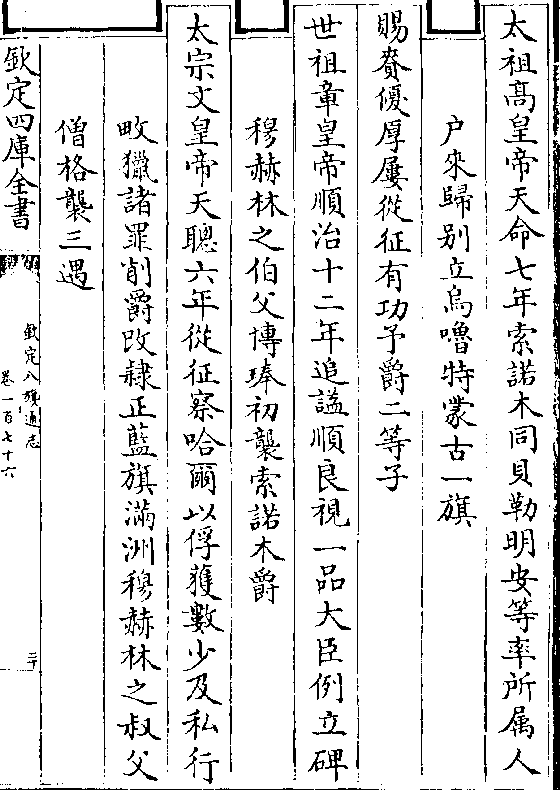 太祖髙皇帝天命七年索諾木同貝勒明安等率所属人
户來歸别立烏嚕特蒙古一旗
賜賚優厚屢從征有功予爵二等子
世祖章皇帝順治十二年追諡順良視一品大臣例立碑
穆赫林之伯父博琫初襲索諾木爵
太宗文皇帝天聰六年從征察哈爾以俘獲數少及私行
畋獵諸罪削爵改隸正藍旗滿洲穆赫林之叔父
僧格襲三遇
欽定四庫全書
欽定八旗通志
卷一百七十六
二十